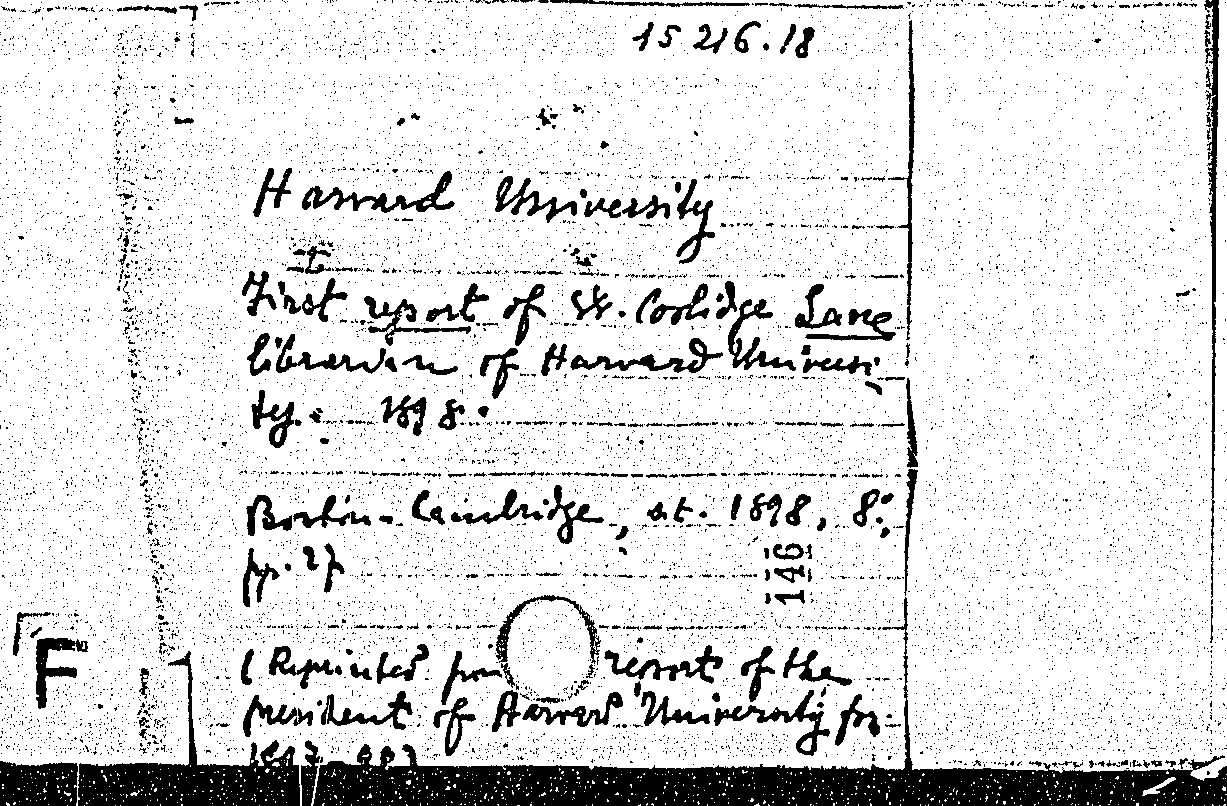 15216.18
Harvard University
First report of W. Coolidge Lane
librarian of Harvard Universi
ty. 1898.
Boston-Cambridge, s.t. 1898, 8º,
pp. 27
146
(Reprinted from report of the
president of Harvard University for
1897-98)
F